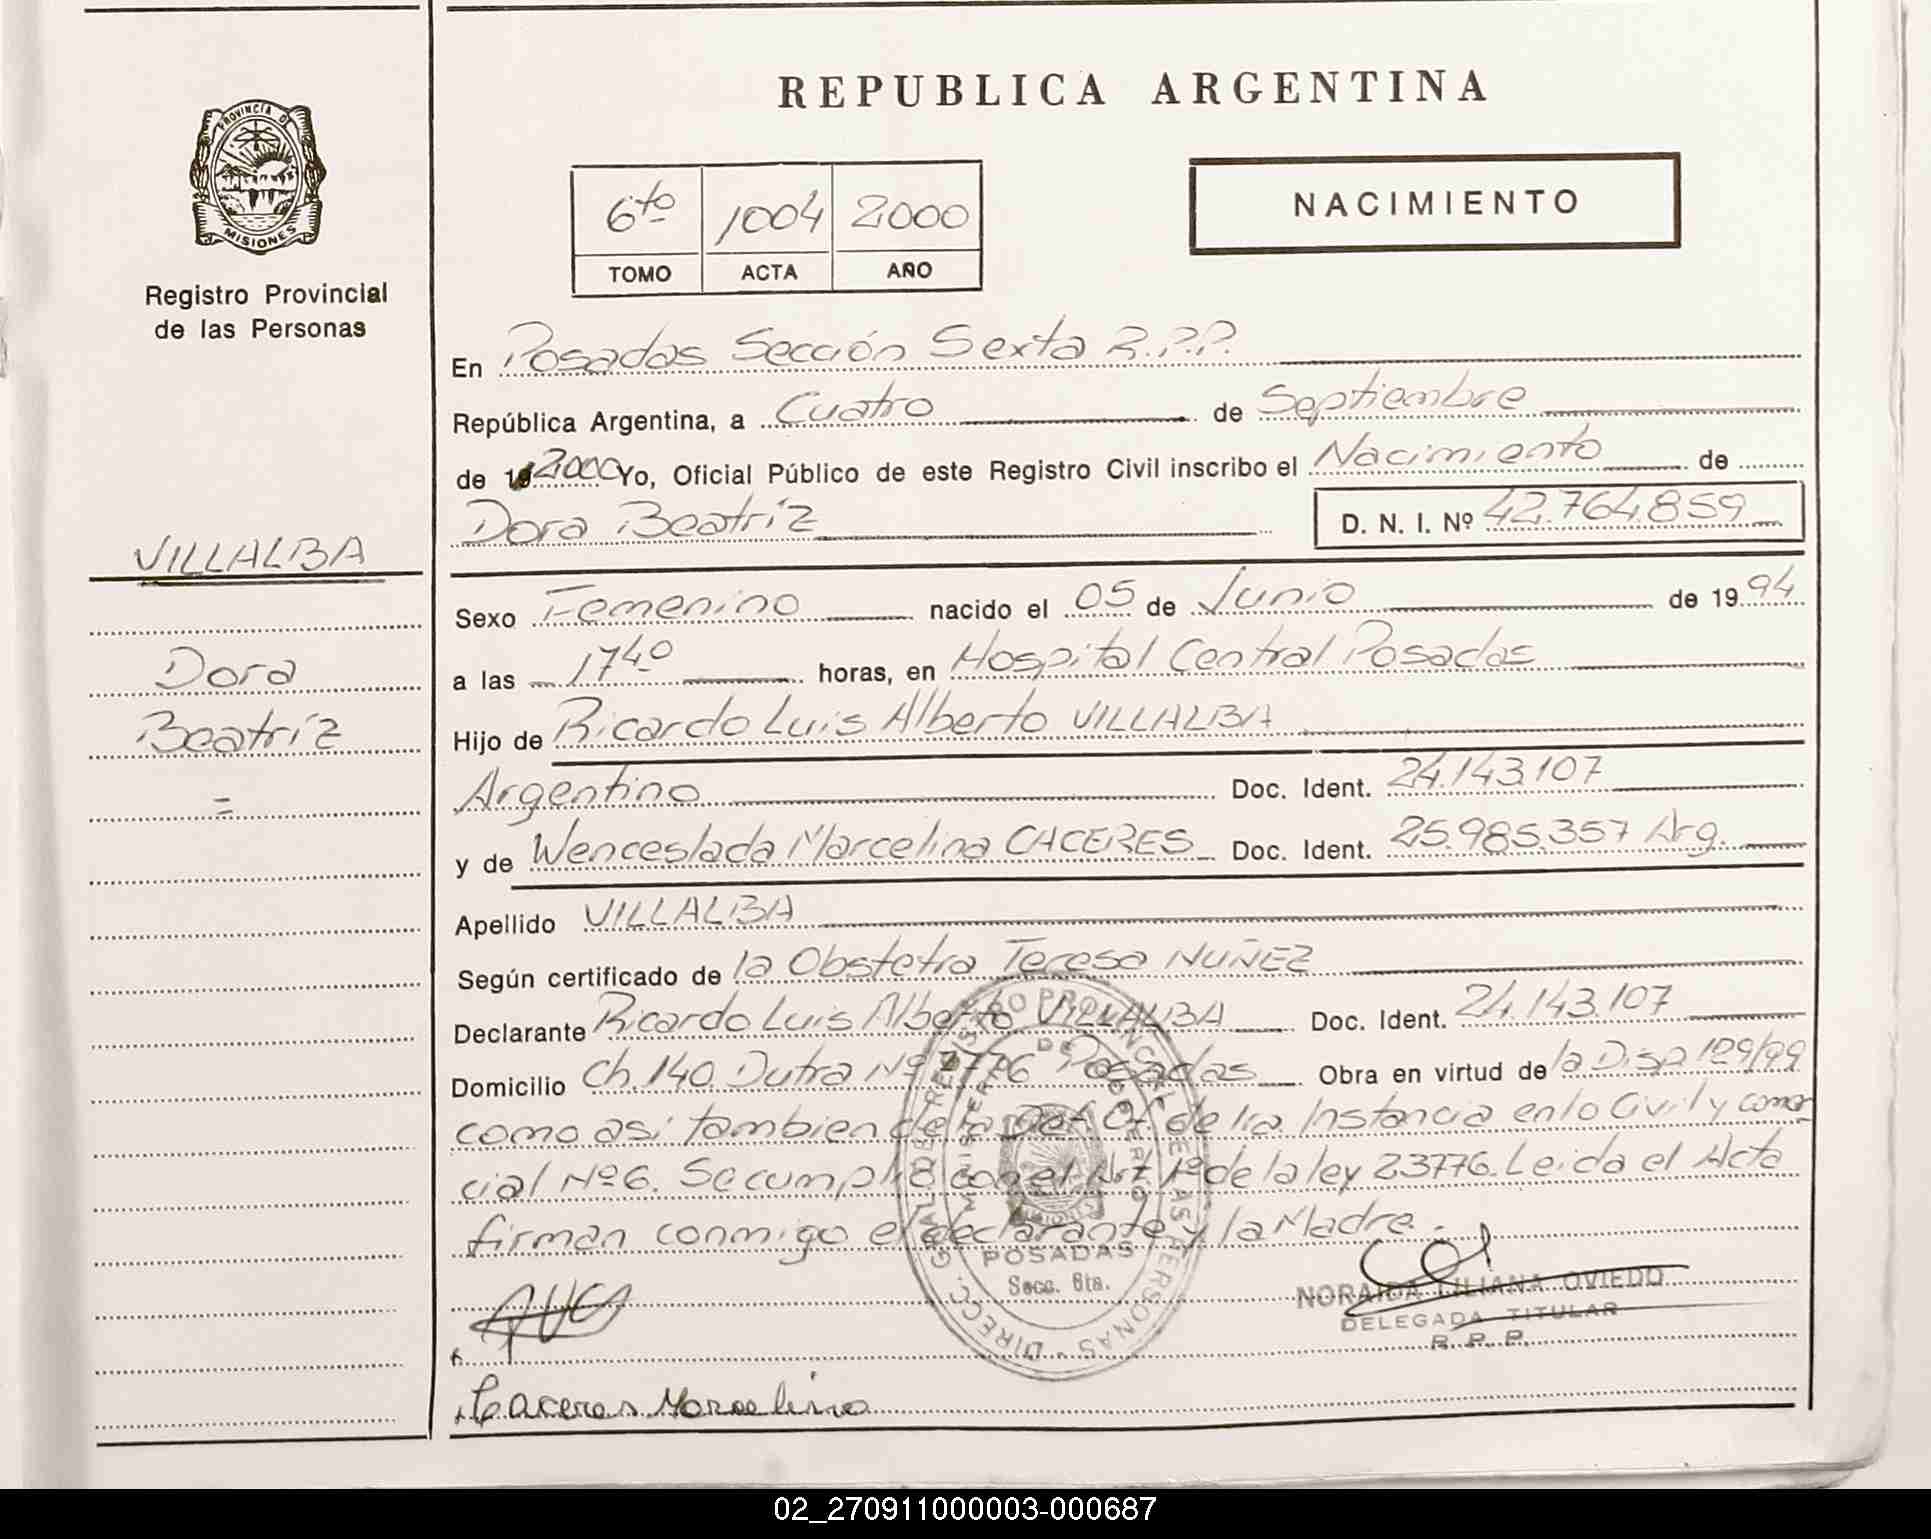 REPUBLICA ARGENTINA
PROVINCIA DE
MISIONES
Registro Provincial
de las Personas
6to 1004 2000
TOMO ACTA AÑO
NACIMIENTO
En Posadas Sección Sexta R.P.P.
República Argentina, a Cuatro de Septiembre
de 19 2000 Yo, Oficial Público de este Registro Civil inscribo el Nacimiento de
Dora Beatríz D. N. I. Nº 42.764.859
VILLALBA
Dora
Beatríz
=
Sexo Femenino nacido el 05 de Junio de 1994
a las 1740 horas, en Hospital Central Posadas
Hijo de Ricardo Luis Alberto VILLALBA
Argentino Doc. Ident. 24.143.107
y de Wenceslada Marcelina CACERES Doc. Ident. 25.985.357 Arg.
Apellido VILLALBA
Según certificado de la Obstetra Teresa NUÑEZ
Declarante Ricardo Luis Alberto VILLALBA Doc. Ident. 24.143.107
Domicilio Ch. 140 Dutra Nº 7776 Posadas Obra en virtud de la Disp 129/99
como asi tambien de la Def Of de 1ra Instancia en lo Civil y comer
cial Nº6. Se cumplió con el Art 1º de la ley 23776. Leida el Acta
firman conmigo el declarante y la Madre.
DIRECC. GRAL DE REGISTRO PROVINCIAL DE LAS PERSONAS
MINISTERIO DE GOBIERNO
POSADAS
Secc. 6ta.
NORAIDA LILIANA OVIEDO
DELEGADA TITULAR
R. P. P.
Caceres Marcelina
02_270911000003-000687